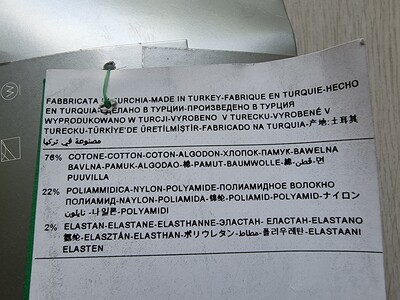 FABBRICATA TURCHIA-MADE IN TURKEY-FABRIQUE EN TURQUIE-HECHO
EN TURQUIA-СДЕЛАНО В ТУРЦИИ-ПРОИЗВЕДЕНО В ТУРЦИЯ
WYPRODUKOWANO W TURCJI-VYROBENO V TURECKU-VYROBENÉ V
TURECKU-TÜRKİYE'DE ÜRETİLMİŞTİR-FABRICADO NA TURQUIA-产地:土耳其
مصنوعة في تركيا
76% COTONE-COTTON-COTON-ALGODON-ХЛОПОК-ПАМУК-BAWELNA
BAVLNA-PAMUK-ALGODAO-棉-PAMUT-BAUMWOLLE-綿-قطن-면
PUUVILLA
22% POLIAMMIDICA-NYLON-POLYAMIDE-ПОЛИАМИДНОЕ ВОЛОКНО
ПОЛИАМИД-NAYLON-POLIAMIDA-锦纶-POLIAMID-POLYAMID-ナイロン
نايلون-나일론-POLYAMIDI
2% ELASTAN-ELASTANE-ELASTHANNE-ЭЛАСТАН- ЕЛАСТАН-ELASTANO
氨纶-ELASZTÁN-ELASTHAN-ポリウレタン-مطاط-폴리우레탄-ELASTAANI
ELASTEN